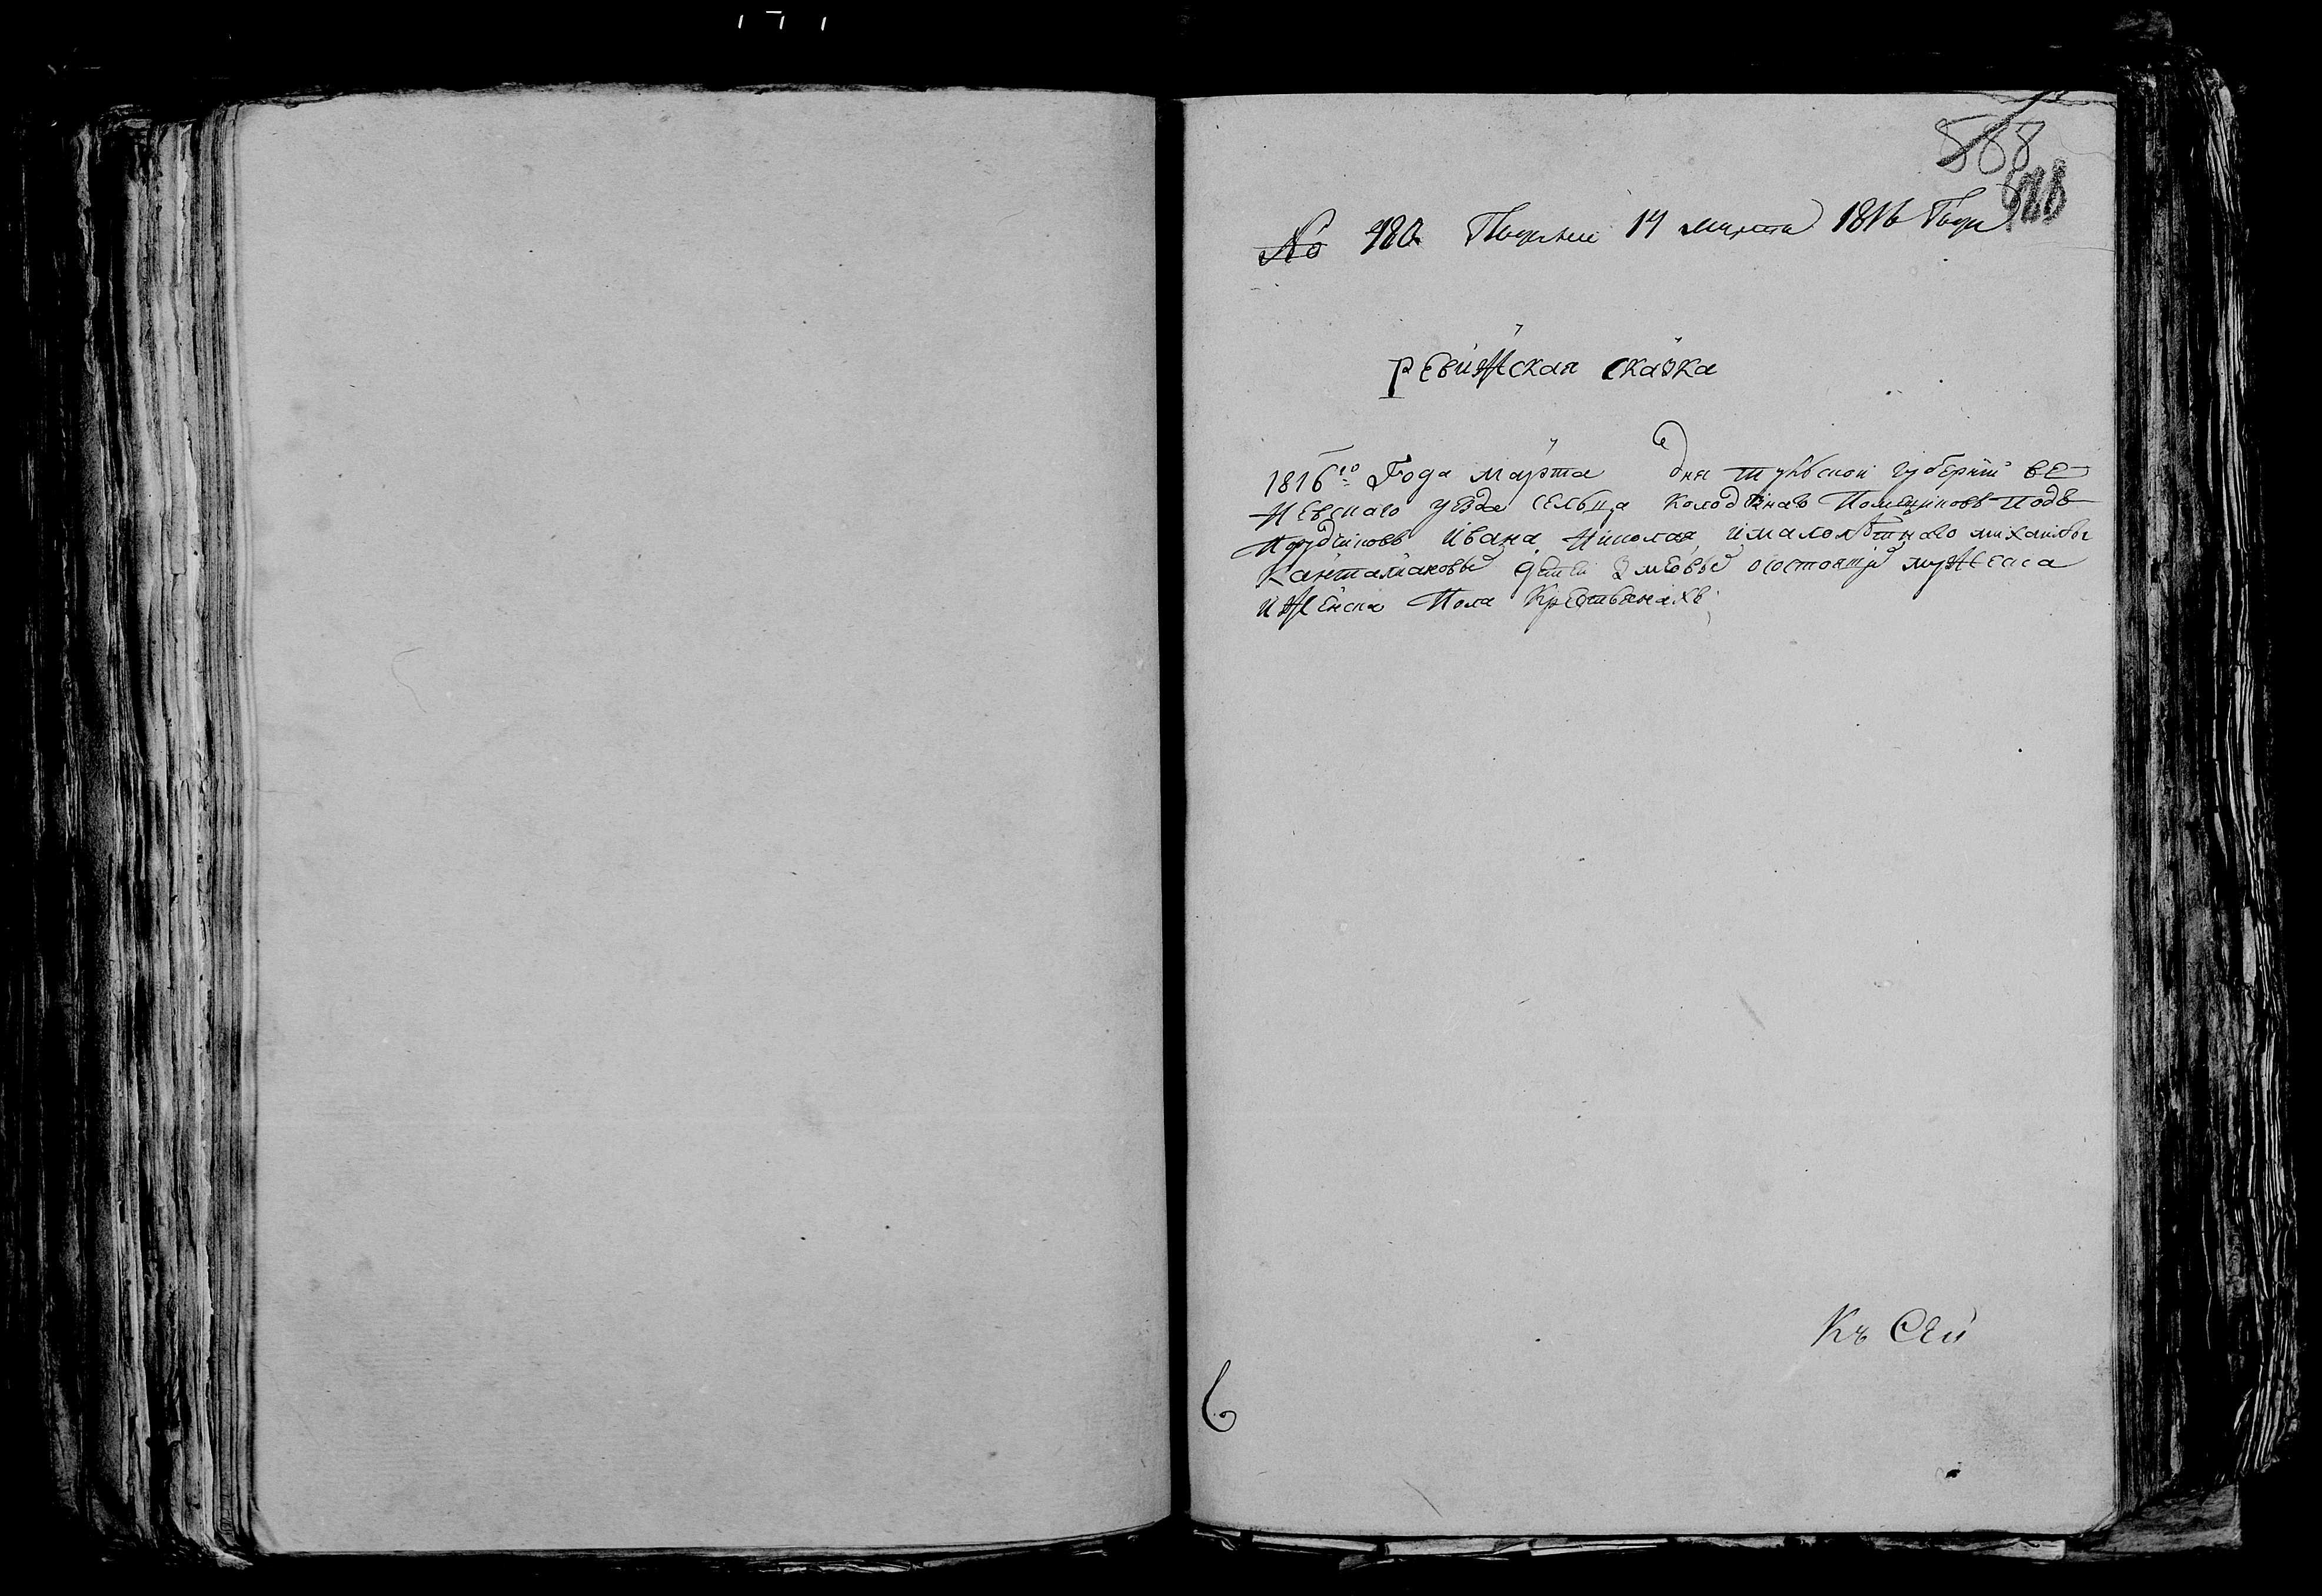 588
№ 480. Подана 14 марта 1816 Года
ревижская сказка
1816го Года марта дня тулской губернии ве-
невскаго уезда селца Колодезнаго Помещиковъ подъ
порудчиковъ Ивана Николая ималолетнаго михаилы
детей змеовы осостоящи мужеска
иженска Пола Крестьянахъ
Къ Сей